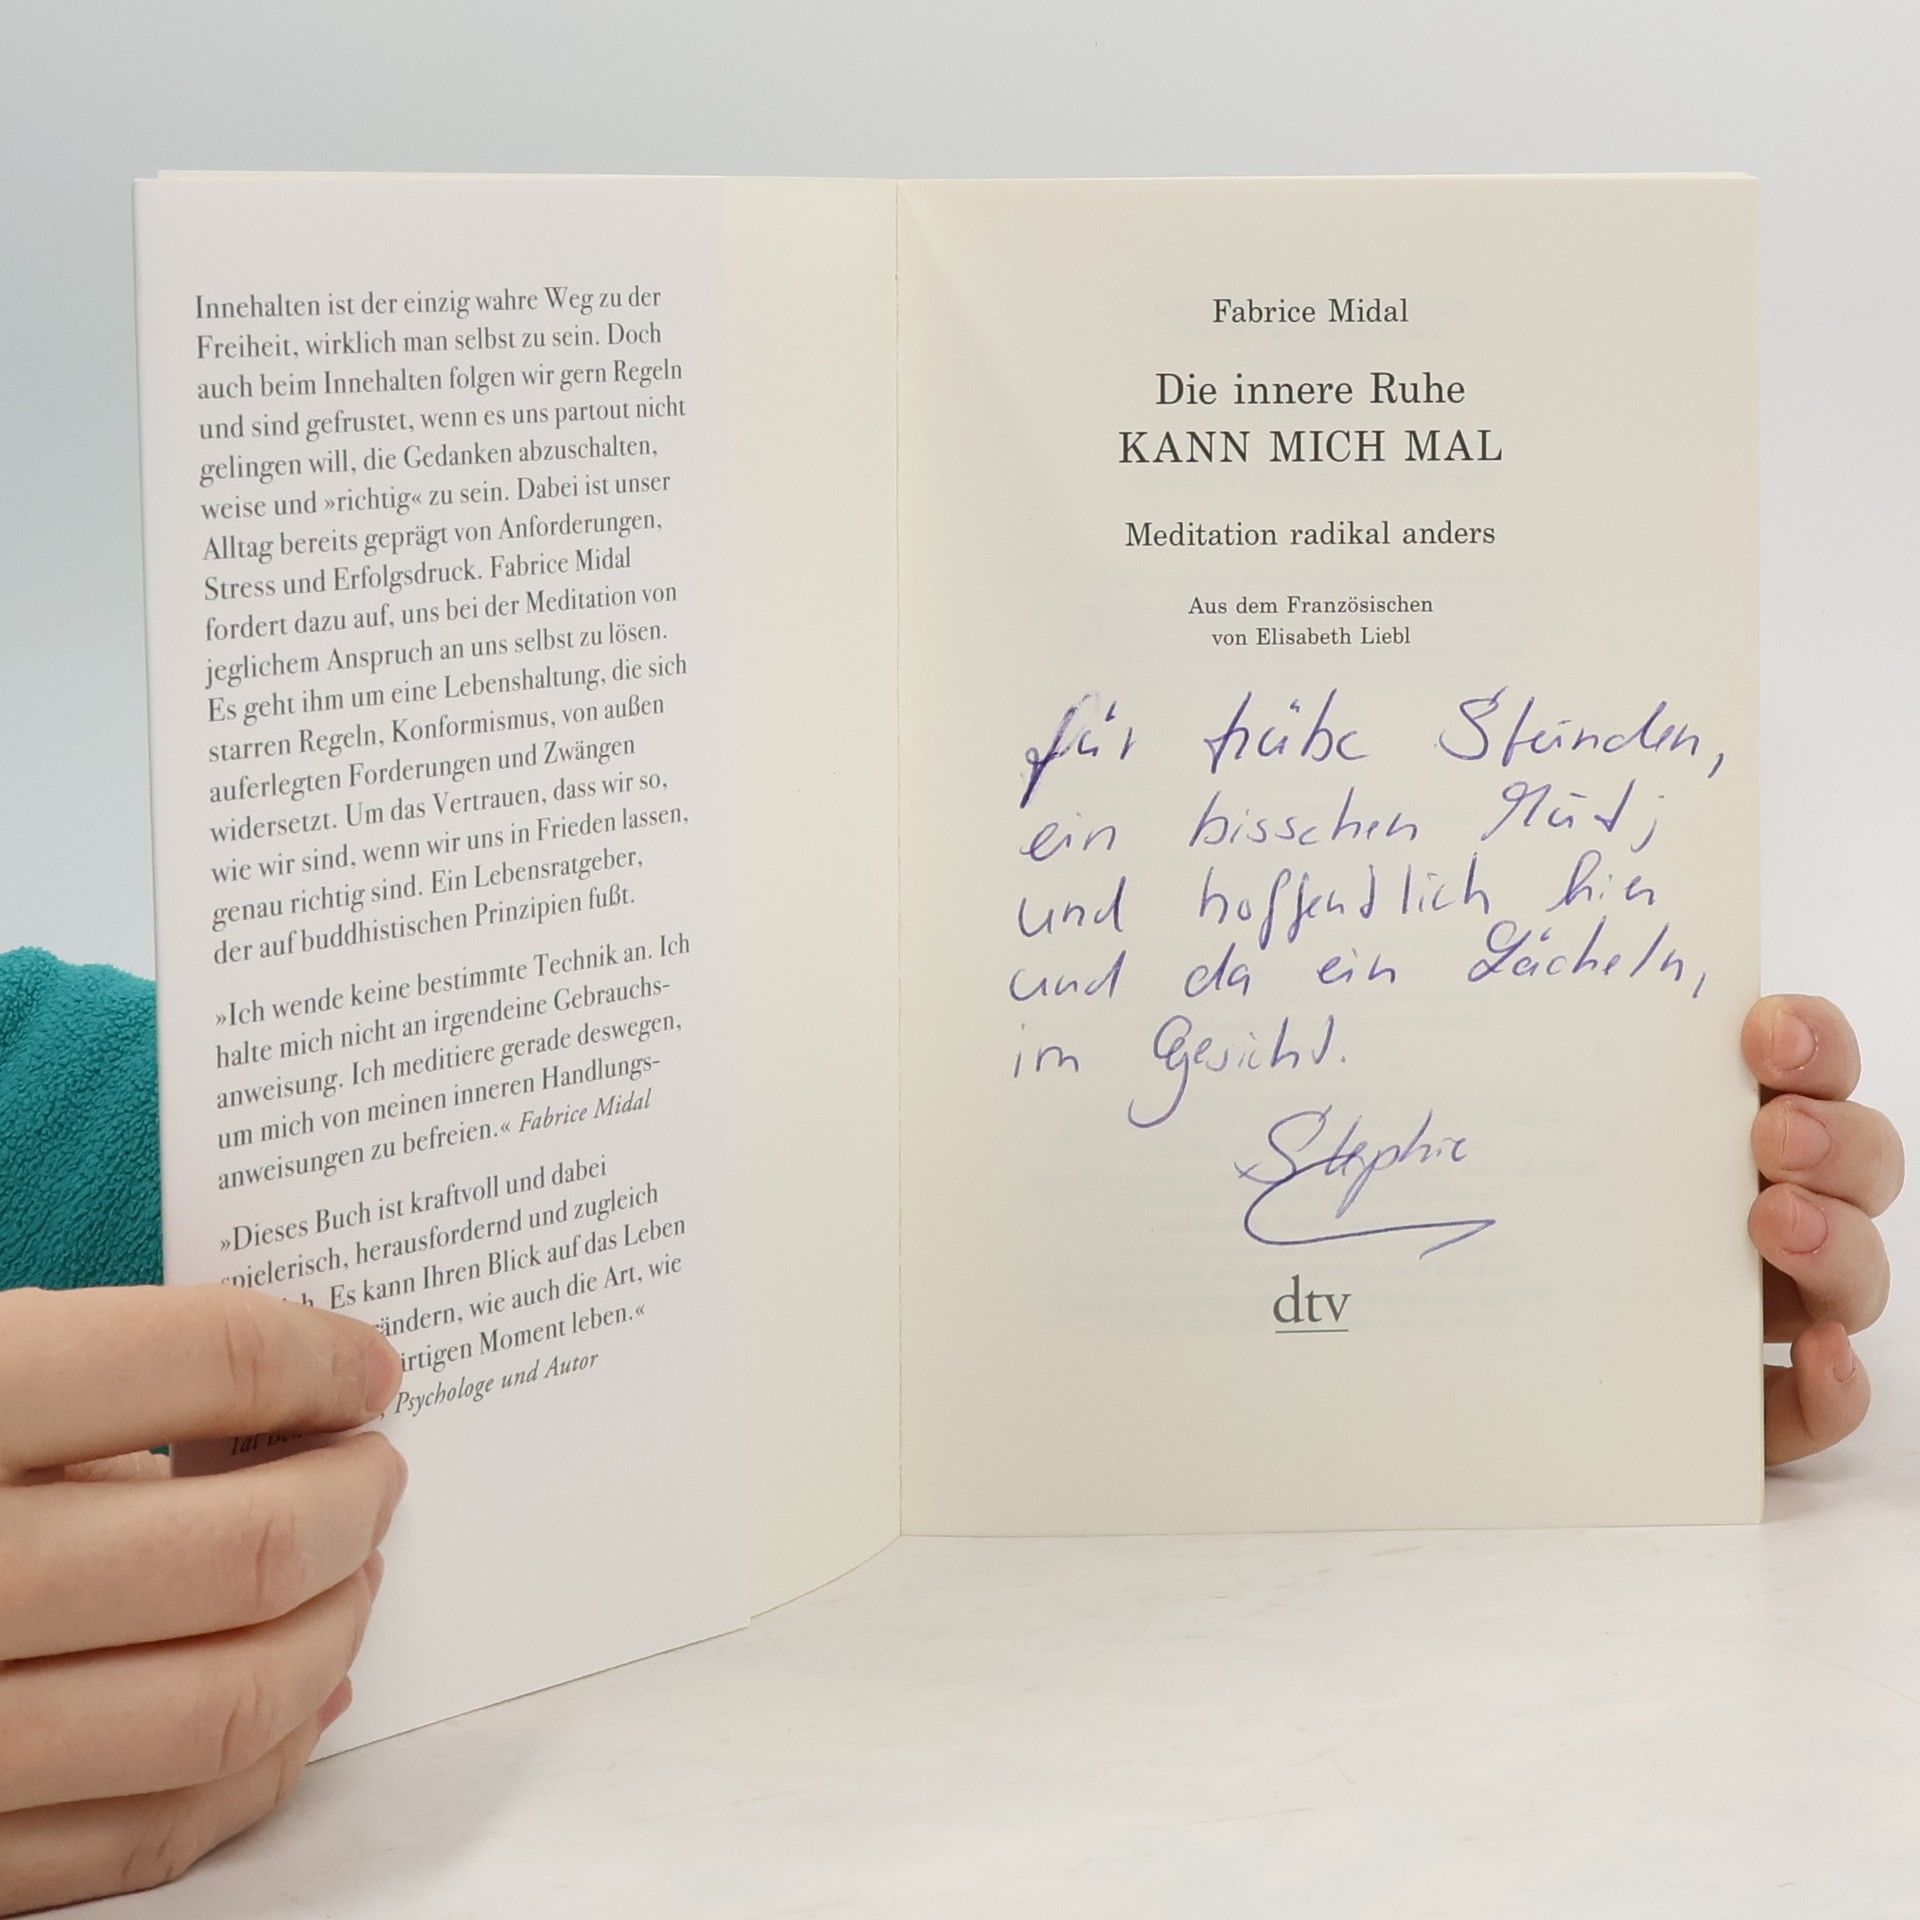 Innehalten ist der einzig wahre Weg zu der
Freiheit, wirklich man selbst zu sein. Doch
auch beim Innehalten folgen wir gern Regeln
und sind gefrustet, wenn es uns partout nicht
gelingen will, die Gedanken abzuschalten,
weise und »richtig« zu sein. Dabei ist unser
Alltag bereits geprägt von Anforderungen,
Stress und Erfolgsdruck. Fabrice Midal
fordert dazu auf, uns bei der Meditation von
jeglichem Anspruch an uns selbst zu lösen.
Es geht ihm um eine Lebenshaltung, die sich
starren Regeln, Konformismus, von außen
auferlegten Forderungen und Zwängen
widersetzt. Um das Vertrauen, dass wir so,
wie wir sind, wenn wir uns in Frieden lassen,
genau richtig sind. Ein Lebensratgeber,
der auf buddhistischen Prinzipien fußt.
»Ich wende keine bestimmte Technik an. Ich
halte mich nicht an irgendeine Gebrauchs-
anweisung. Ich meditiere gerade deswegen,
um mich von meinen inneren Handlungs-
anweisungen zu befreien.« Fabrice Midal
»Dieses Buch ist kraftvoll und dabei
spielerisch, herausfordernd und zugleich
Es kann Ihren Blick auf das Leben
ändern, wie auch die Art, wie
irtigen Moment leben.«
Tal
, Psychologe und Autor
Fabrice Midal
Die innere Ruhe
KANN MICH MAL
Meditation radikal anders
Aus dem Französischen
von Elisabeth Liebl
für trübe Stunden,
ein bisschen Mut;
und hoffentlich hier
und da ein Lächeln,
im Gesicht.
Stephie
dtv